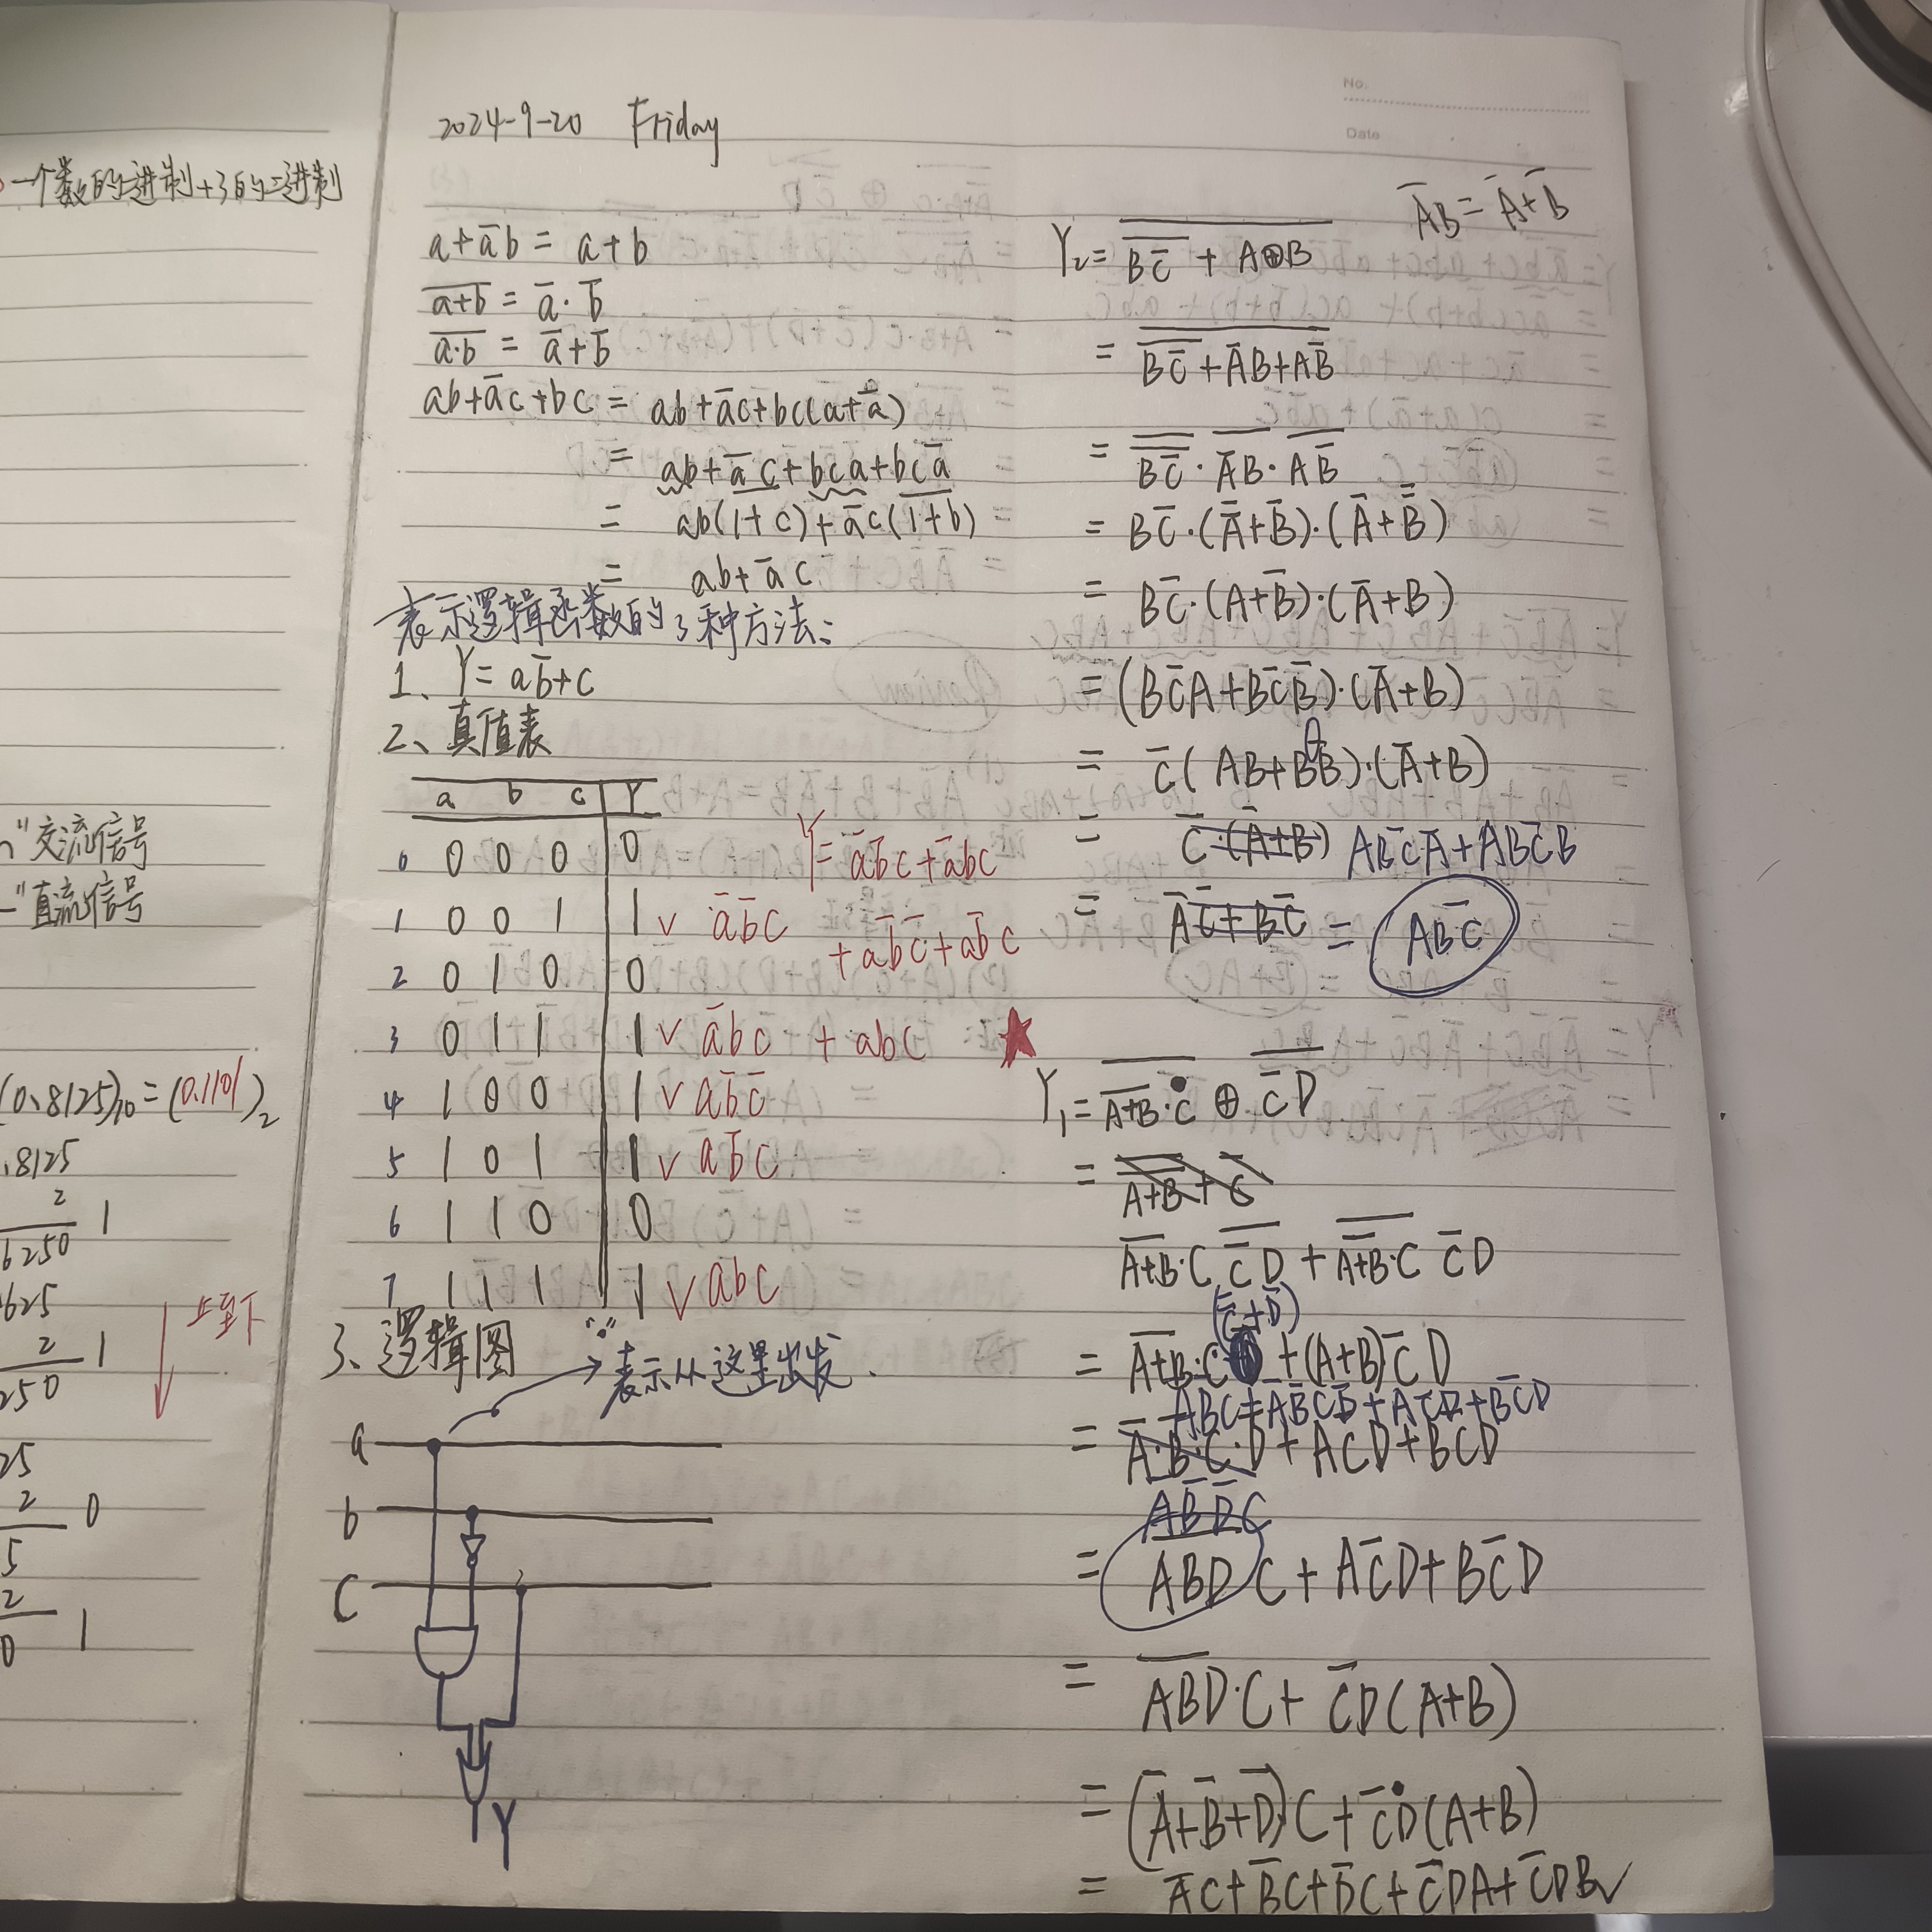 一个数的二进制+3的二进制
"交流信号
"直流信号
(0.8125)₁₀=(0.1101)₂
.8125
2
6250 1
625
2 1
250
上至下
25
2 0
5
2 1
0
No.
Date
2024-9-20 Friday
a+a̅b = a+b
\overline{a+b} = a̅·b̅
\overline{a·b} = a̅+b̅
ab+a̅c+bc = ab+a̅c+bc(a+a̅)
= ab+a̅c+bca+bca̅
= ab(1+c)+a̅c(1+b)
= ab+a̅c
表示逻辑函数的3种方法:
1、Y=ab̅+c
2、真值表
a b c Y
0 0 0 0 0
1 0 0 1 1 ✓ a̅b̅c
2 0 1 0 0
3 0 1 1 1 ✓ a̅bc
4 1 0 0 1 ✓ ab̅c̅
5 1 0 1 1 ✓ ab̅c
6 1 1 0 0
7 1 1 1 1 ✓ abc
Y=a̅b̅c+a̅bc
+ab̅c̅+ab̅c
+abc
3、逻辑图
"•"
表示从这里出发.
a
b
C
Y
\overline{AB}=A̅+B̅
Y₂=\overline{\overline{BC̅}+A⊕B}
=\overline{\overline{BC̅}+A̅B+AB̅}
=\overline{\overline{BC̅}}·\overline{A̅B}·\overline{AB̅}
=BC̅·(A̿+B̅)·(A̅+B̿)
=BC̅·(A+B̅)·(A̅+B)
=(BC̅A+BC̅B̅)·(A̅+B)
=C̅(AB+BB̅)·(A̅+B)
=C̅·(A̅+B) ABC̅A̅+ABC̅B
=A̅C̅+BC̅ = ABC̅
Y₁=\overline{\overline{A+B}·C}⊕\overline{C̅D}
=\overline{\overline{A+B}}+C̅
\overline{A+B}·C \overline{C̅D}+\overline{\overline{A+B}·C} C̅D
(C̿+D̅)
=\overline{A+B}·C +(A+B)C̅D
A̅B̅C+A̅B̅CD̅+AC̅D+BC̅D
=A̅·B̅·C·D̅+AC̅D+BC̅D
=\overline{ABD}C+AC̅D+BC̅D
=\overline{ABD}·C+C̅D(A+B)
=(A̅+B̅+D̅)C+C̅D(A+B)
=A̅C+B̅C+D̅C+C̅DA+C̅DB✓